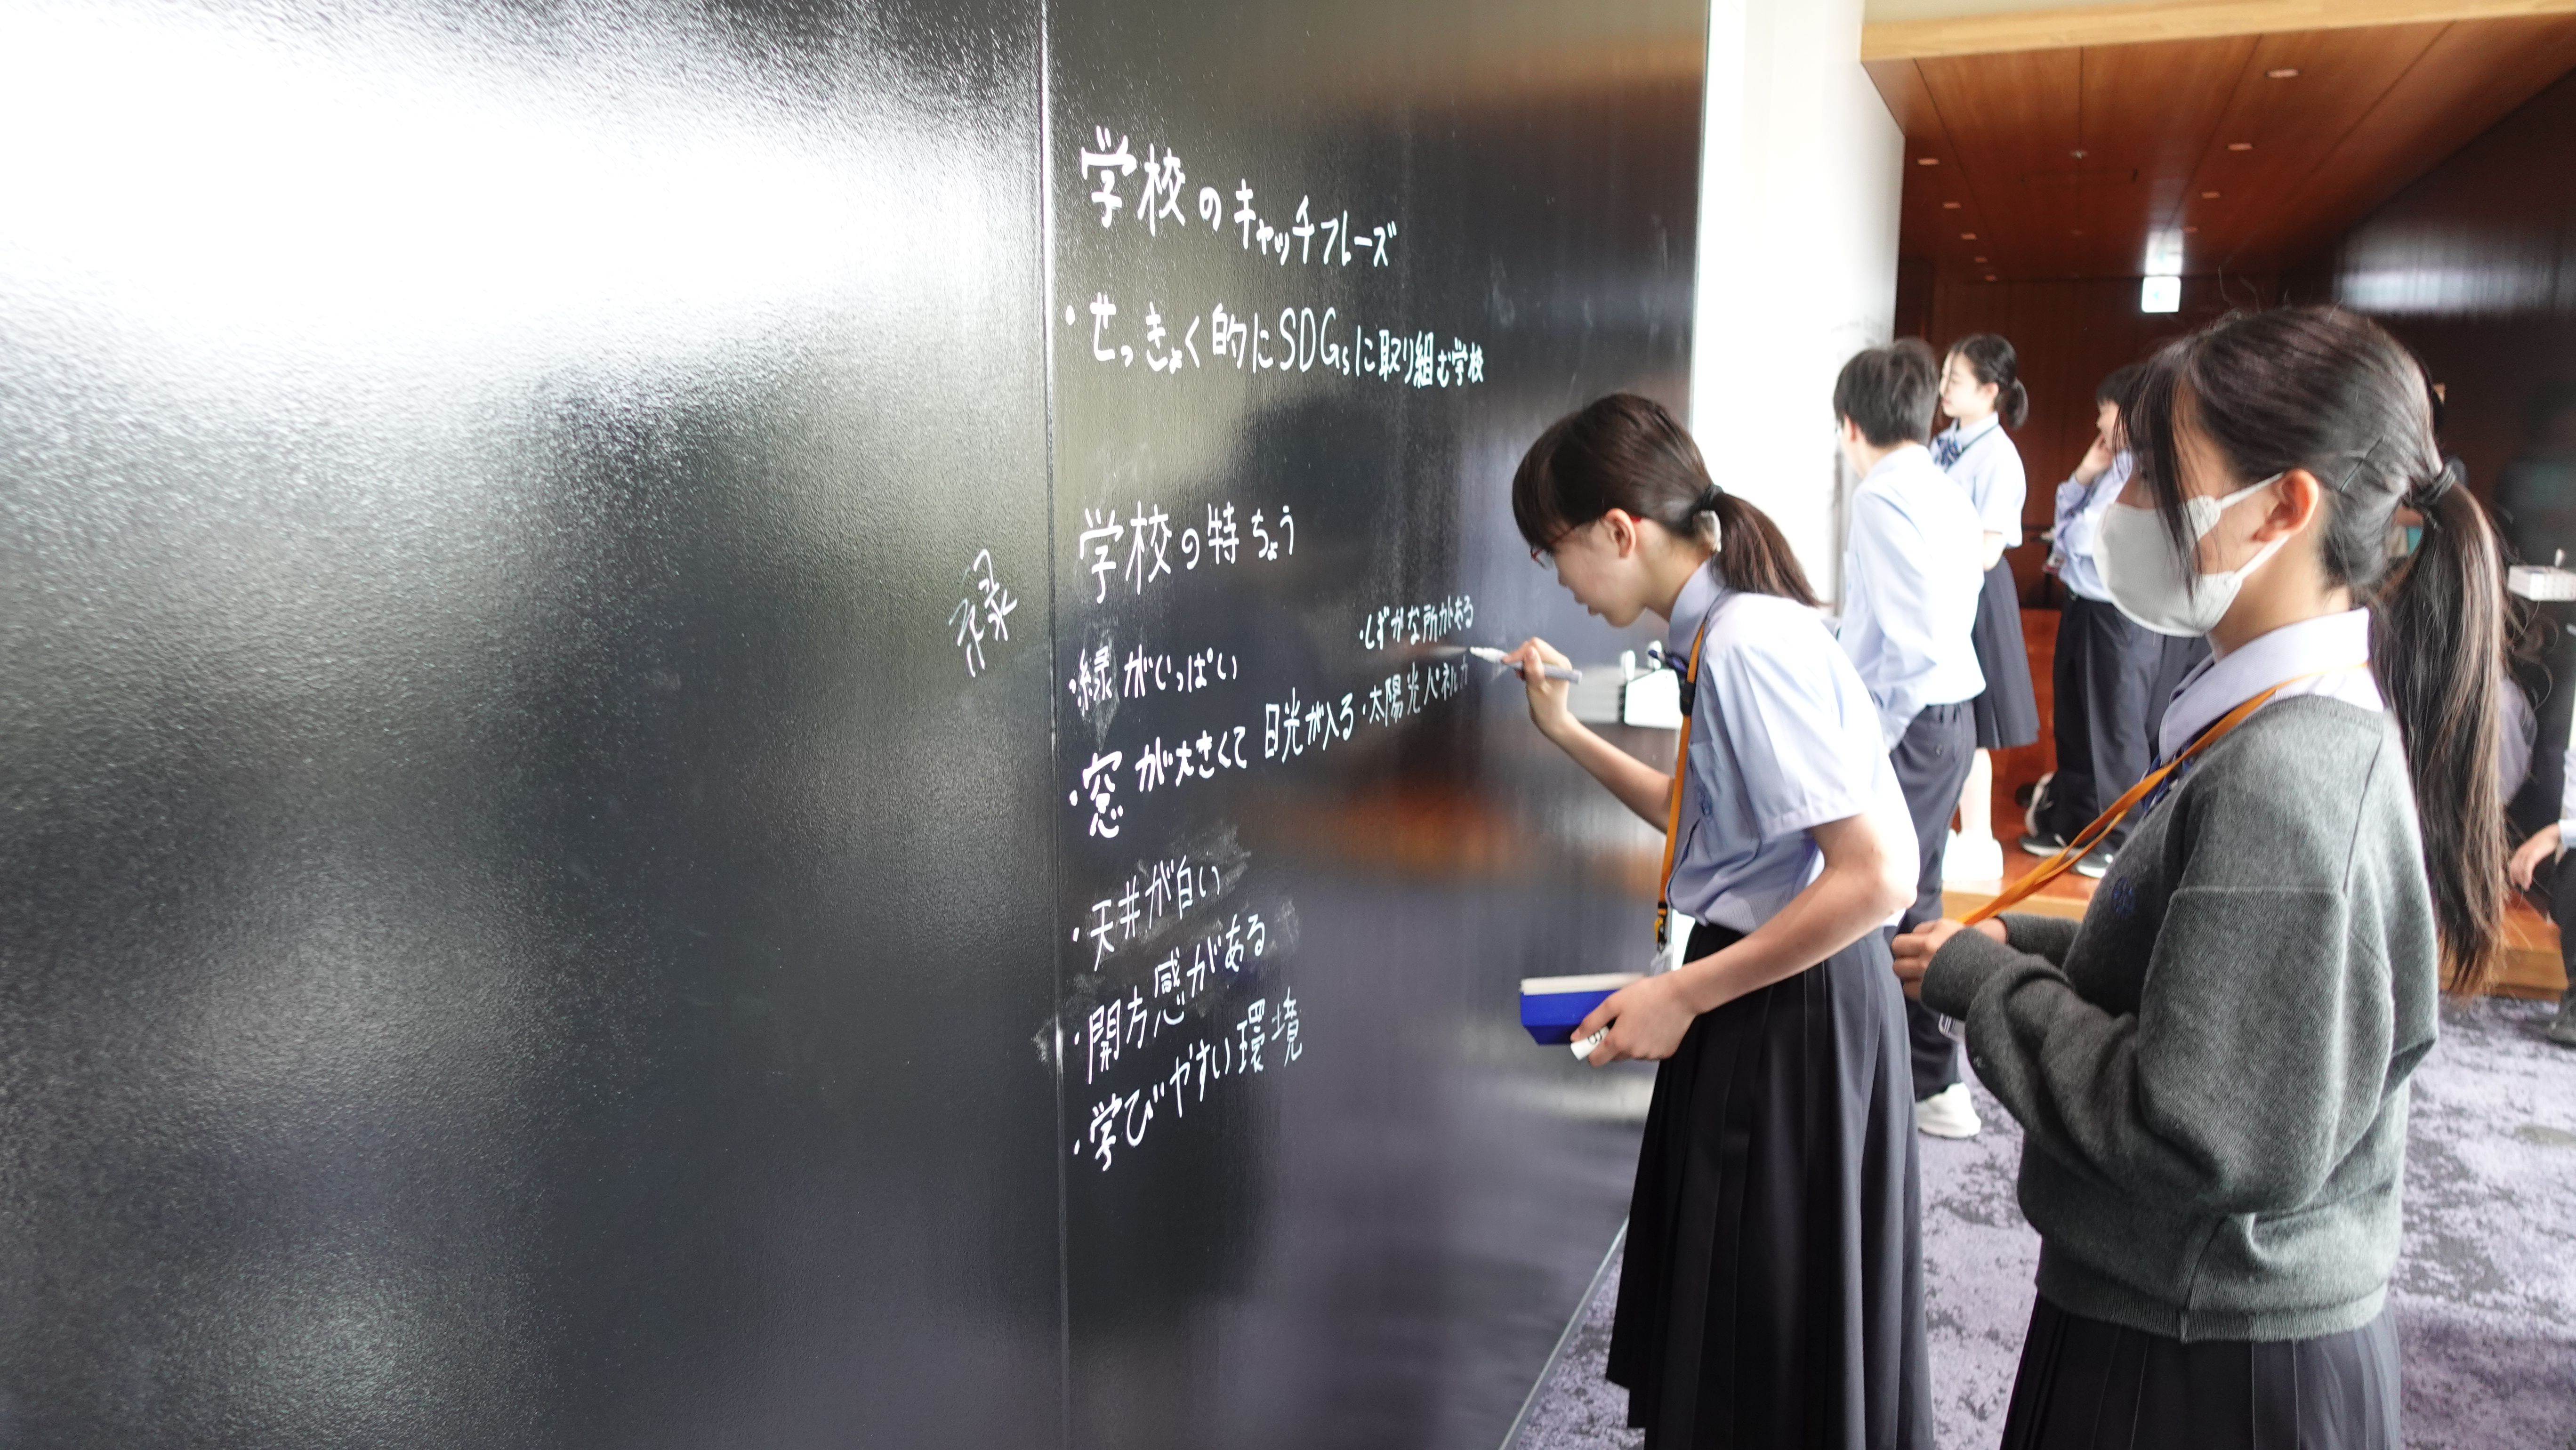 学校のキャッチフレーズ
・せっきょく的にSDGsに取り組む学校
学校の特ちょう
緑
・緑がいっぱい
・しずかな所がある
・窓が大きくて日光が入る
・太陽光パネルが
・天井が白い
・開方感がある
・学びやすい環境